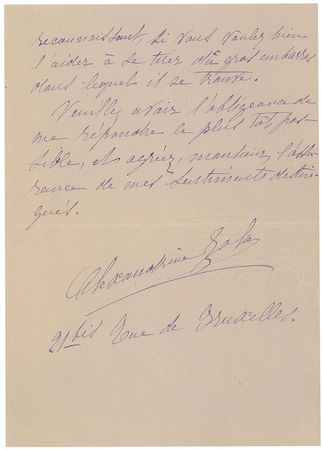 reconnaissant, si vous voulez bien
l'aider à se tirer du gros embarras
dans lequel il se trouve.
Veuillez avoir l'obligeance de
me répondre le plus tôt pos
sible, et agréez, monsieur, l'assu
rance de mes sentiments distin-
gués.
Alexandrine Zola
21 bis Rue de Bruxelles.